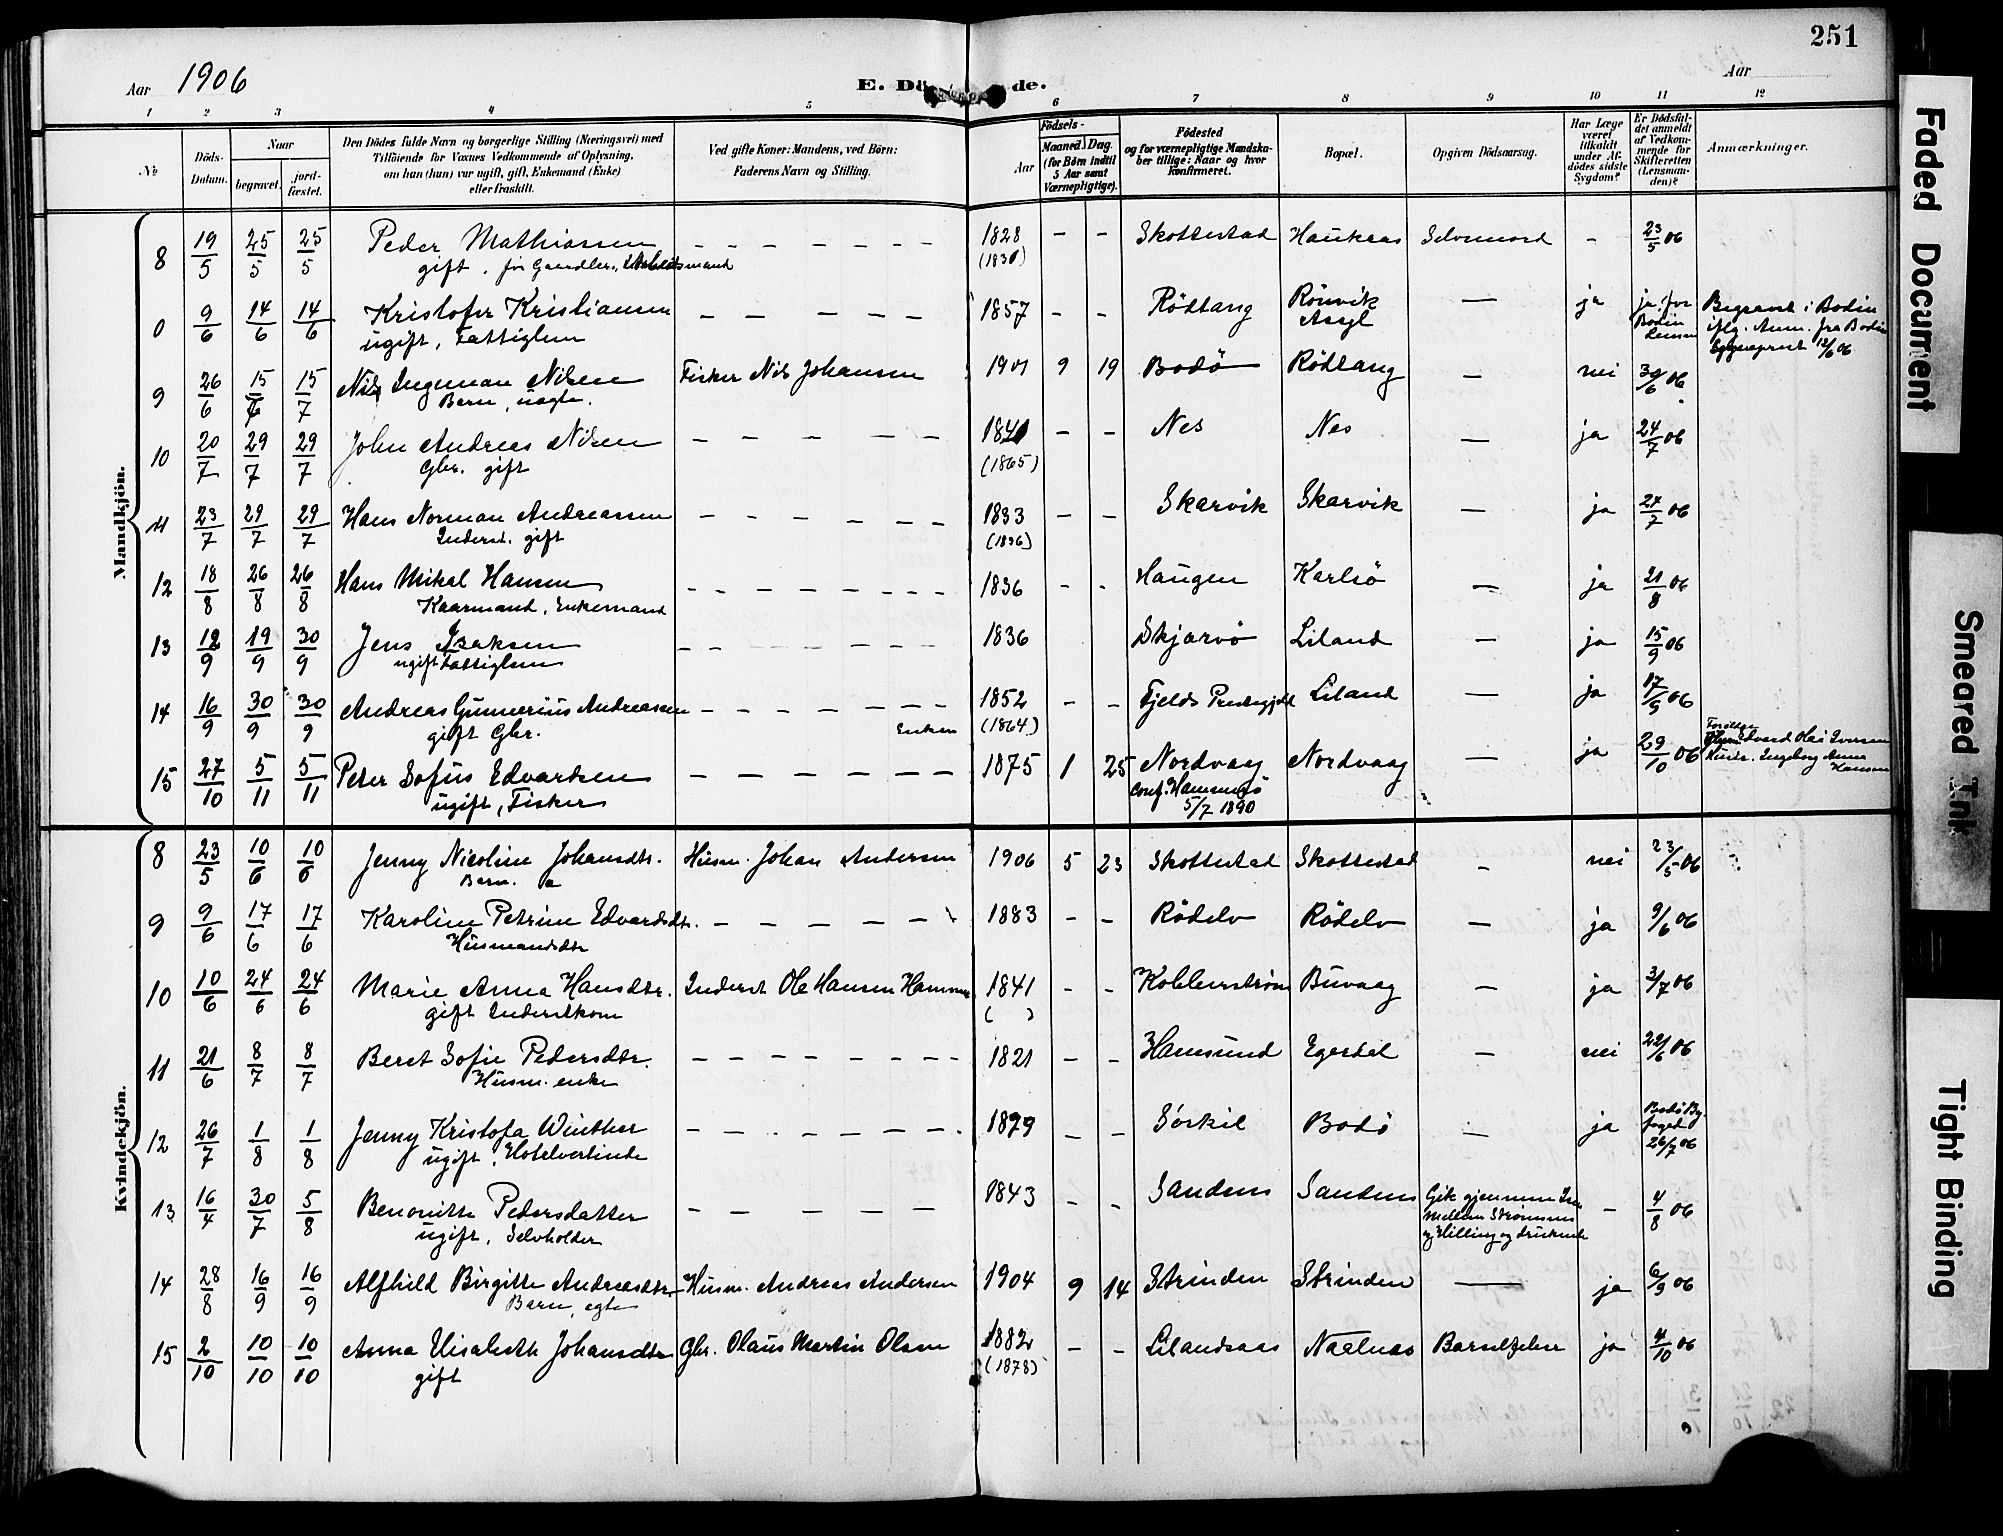 251
Aar 1906
E. Dö de.
Aar
1 2 3 4 5 6 7 8 9 10 11 12
№
Döds-Datum.
Naar
begravet.
jord-fæstet.
Den Dödes fulde Navn og borgerlige Stilling (Næringsvei) med
Tilföiende for Voxnes Vedkommende af Oplysning,
om han (hun) var ugift, gift, Enkemand (Enke)
eller fraskilt.
Ved gifte Koner: Mandens, ved Börn:
Faderens Navn og Stilling.
Födsels-
Aar
Maaned. Dag.
(for Börn indtil
5 Aar samt
Værnepligtige).
Födested
og for værnepligtige Mandska-
ber tillige: Naar og hvor
konfirmeret.
Bopæl.
Opgiven Dödsaarsag.
Har Læge
været
tilkaldt
under Af-
dödes sidste
Sygdom?
Er Dödsfal-
det anmeldt
af Vedkom-
mende for
Skifteretten
(Lensman-
den)?
Anmærkninger.
Mandkjön.
8 19/5 25/5 25/5 Peder Mathiassen – – – – – – – 1828 – – Skottestad Haukras Selvmord – 23/5 06
gift, för Gaardbr.
0 9/6 14/6 14/6 Kristofer Kristiansen – – – – – 1857 – – Rödtang Rönvik Asyl — ja ja for Bodin Lensm Begravet i Bodin
ugift, Fattiglem iflg. Anm. fra Bodin
12/6 06
9 26/6 15/7 15/7 Nils Ingeman Nilsen Fisker Nils Johansen 1901 9 19 Bodö Rödtang — nei 30/6 06
Barn, uægte.
10 20/7 29/7 29/7 John Andreas Nilsen – – – – – 1840 – – Nes Nes — ja 24/7 06
Gbr. gift (1865)
11 23/7 29/7 29/7 Hans Norman Andreassen – – – – – – 1833 – – Skarvik Skarvik — ja 24/7 06
Inderst. gift (1836)
12 18/8 26/8 26/8 Hans Mikal Hansen – – – – – – – 1836 – – Haugen Karlsö — ja 21/8 06
Kaarmand, Enkemand
13 12/9 19/9 30/9 Jens Isaksen – – – – – – 1836 Skjærvö Liland — ja 15/9 06
ugift Fattiglem
14 16/9 30/9 30/9 Andreas Gunnerius Andreassen – – – – – – – 1852 – – Fjelds Prestegjeld Liland — ja 17/9 06
gift Gbr. Enken (1864)
15 27/10 5/11 5/11 Peter Sofus Edvardsen – – – – – – 1875 1 25 Nordvaag Nordvaag — ja 29/10 06 Edvard Olai Iversen
ugift, Fisker conf. Hammerö Ingeborg Anna Hansen
5/7 1890
Kvindekjön.
8 23/5 10/6 10/6 Jenny Nicoline Johansdtr. Husm. Johan Andersen 1906 5 23 Skottestad Skottestad – nei 23/5 06
Barn. æ
9 9/6 17/6 17/6 Karoline Petrine Edvardsdtr. – – – – – 1883 – – Rödelv Rödelv — ja 9/6 06
Husmandsdtr
10 10/6 24/6 24/6 Marie Anna Hansdtr. Inderst Ole Hansen Hammer 1841 – – Kobberström Buvaag — ja 3/7 06
gift Inderstkone ( )
11 21/6 8/7 8/7 Beret Sofie Pedersdtr. – – – – – – – 1821 – – Hamsund Egerdal — nei 22/6 06
Husm. enke
12 26/7 1/8 1/8 Jenny Kristofa Winther – – – – – – – 1879 – – Sörkil Bodö — ja Bodö By-foged 26/7 06
ugift, Hotelvertinde
13 16/4 30/7 5/8 Benonitte Pedersdatter – – – – – – 1843 – – Sandnes Sandnes Gik gjennem Isen – 4/8 06
ugift, Selvholder mellem Strömsnes
og Hilling og druknede
14 28/8 16/9 16/9 Alfhild Birgitte Andreasdtr Husm. Andreas Andersen 1904 9 14 Strinden Strinden — ja 6/9 06
Barn, egte
15 2/10 10/10 10/10 Anna Elisabeth Johansdtr Gbr. Olaus Martin Olsen 1882 – – Lilandsaas Naalnes Barselfeber ja 4/10 06
gift (1878)
Faded Document
Smeared Ink
Tight Binding